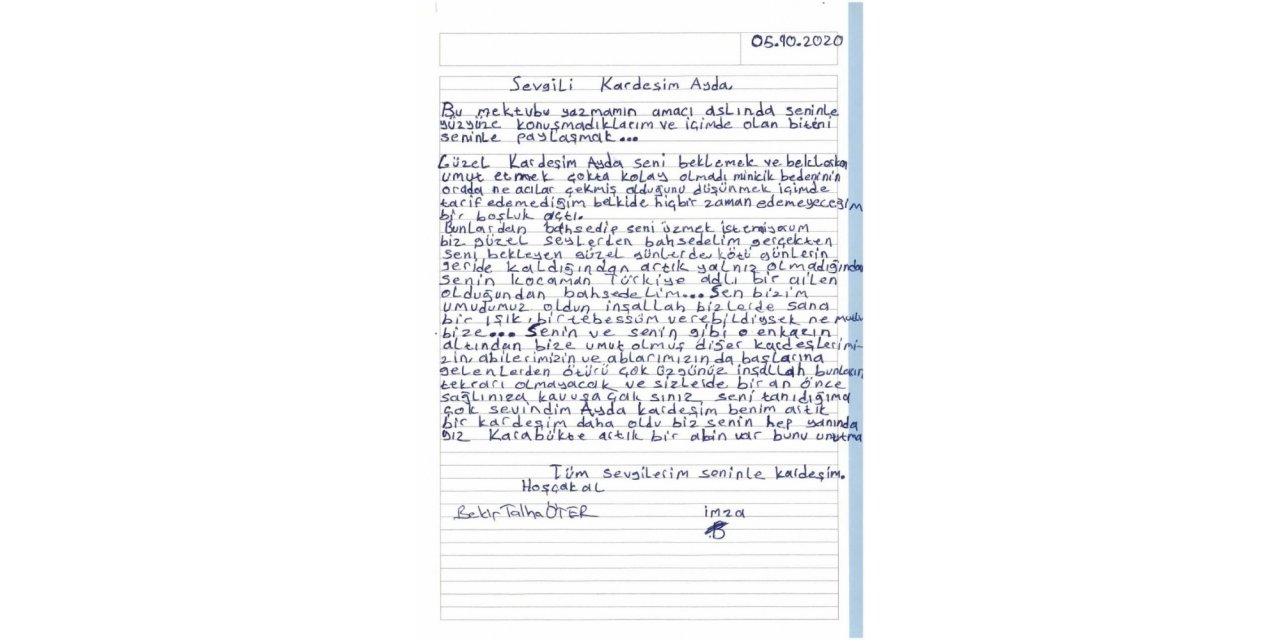 05.10.2020
Sevgili Kardeşim Ayda,
Bu mektubu yazmamın amacı aslında seninle
yüzyüze konuşmadıklarım ve içimde olan biteni
seninle paylaşmak...
Güzel Kardeşim Ayda seni beklemek ve
umut etmek çokta kolay olmadı minicik bedeninin
orada ne acılar çekmiş olduğunu düşünmek içimde
tarif edemediğim belkide hiçbir zaman edemeyeceğim
bir boşluk açtı.
Bunlardan bahsedip seni üzmek istemiyorum
biz güzel şeylerden bahsedelim gerçekten
seni bekleyen güzel günlerde kötü günlerin
geride kaldığından artık yalnız olmadığından
senin kocaman Türkiye adlı bir ailen
olduğundan bahsedelim... Sen bizim
umudumuz oldun inşallah bizlerde sana
bir ışık, bir tebessüm verebildiysek ne mutlu
bize... Senin ve senin gibi o enkazın
altından bize umut olmuş diğer kardeşlerimi-
zin, abilerimizin ve ablarımızın da başlarına
gelenlerden ötürü çok üzgünüz inşallah bunların
tekrarı olmayacak ve sizlerde bir an önce
sağlınıza kavuşacak sınız, seni tanıdığıma
çok sevindim Ayda kardeşim benim artık
bir kardeşim daha oldu biz senin hep yanında
yız Karabükte artık bir abin var bunu unutma
Tüm sevgilerim seninle kardeşim.
Hoşçakal
Bekir Talha ÖTER
imza
B